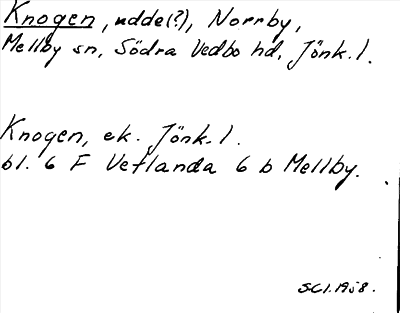 Knogen, udde(?), Norrby,
Mellby sn, Södra Vedbo hd, Jönk. l.
Knogen, ek. Jönk. l.
bl. 6 F Vetlanda 6 b Mellby.
1958.